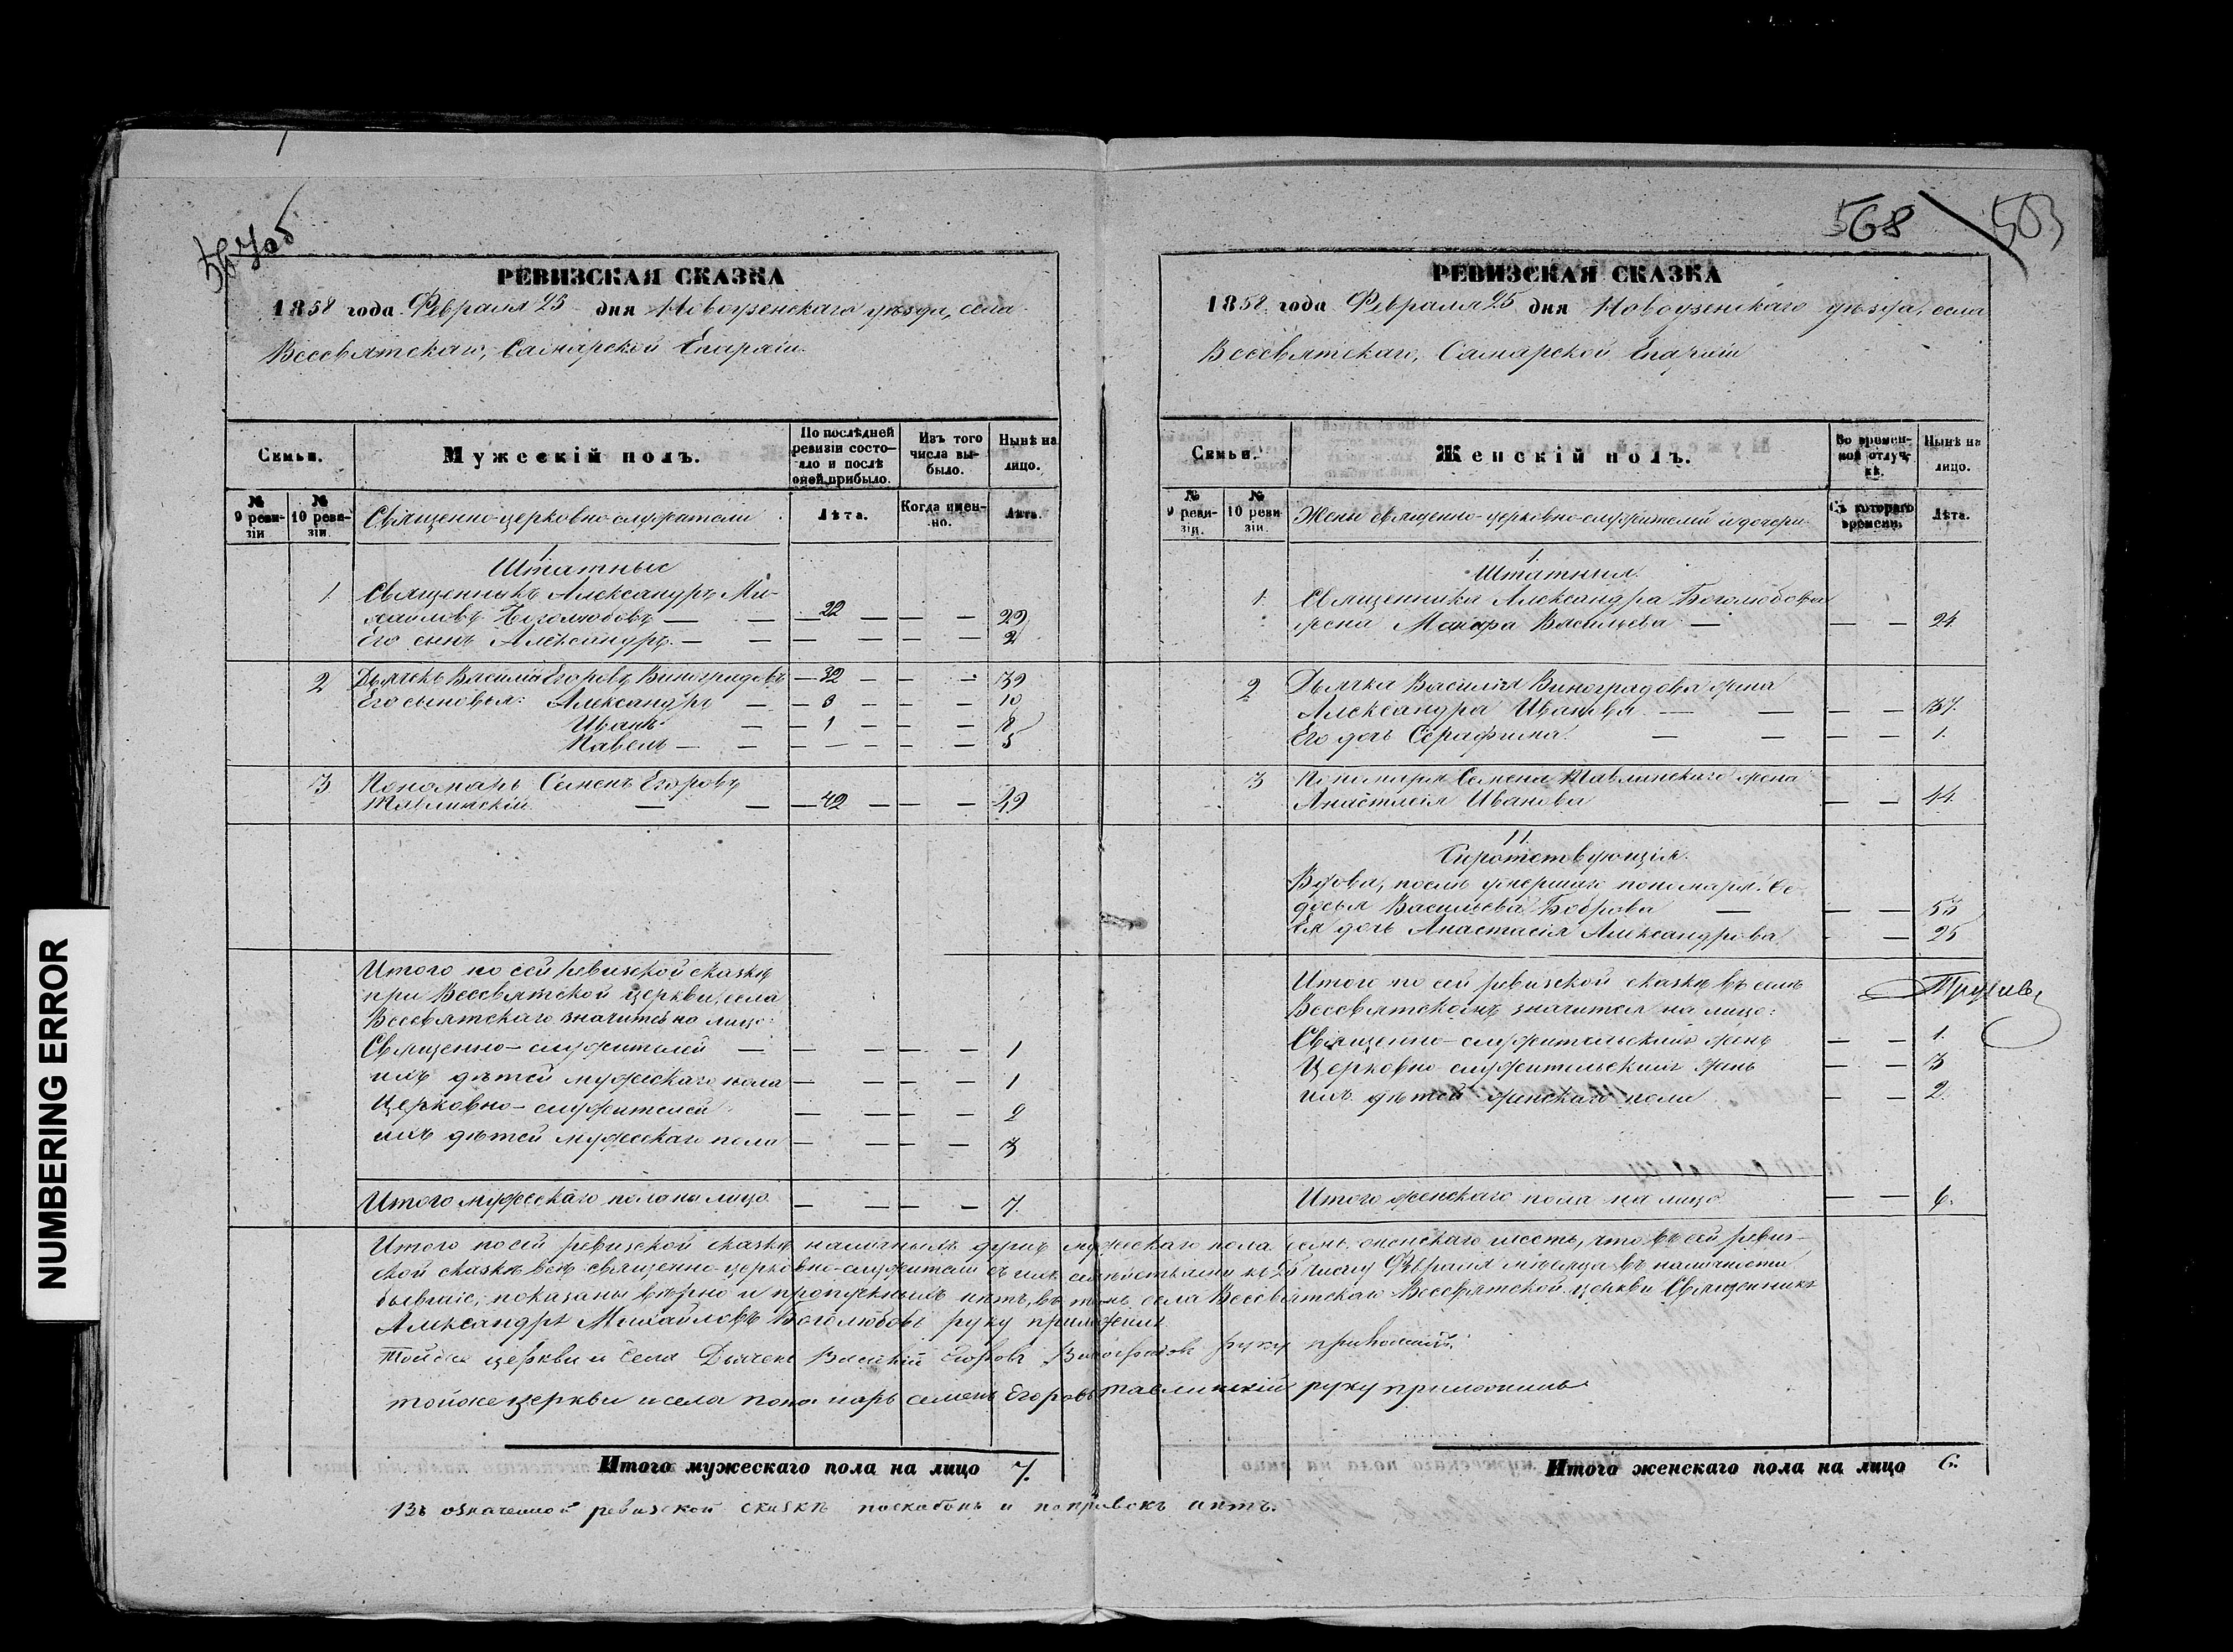 567об
РЕВИЗСКАЯ СКАЗКА
1858 года Февраля 25 дня Новоузенскаго уѣзда, села
Всесвятскаго, Самарской Епархіи.
Семьи.
Мужескій полъ.
По послѣдней ревизіи состояло и послѣ оной прибыло.
Изъ того числа выбыло.
Нынѣ на лицо.
№ 9 ревизіи
№ 10 ревизіи.
Священно-церковно-служители
Лѣта.
Когда именно.
Лѣта.
1.
Штатные
1. Священникъ Александръ Ми-
хайловъ Боголюбовъ — — 22 — — — 29
Его сынъ Александръ. — — — — — — — 2
2 Дьячекъ Василій Егоровъ Виноградовъ — 32 — — — 39
Его сыновья: Александръ — — 3 — — — 10
Иванъ — — 1 — — — 8
Павелъ — — — — — — — 5
3 Пономарь Семенъ Егоровъ
Тавлинскій — — — 42 — — — 49
Итого по сей ревизской сказкѣ
при Всесвятской церкви, села
Всесвятскаго значится на лицо:
Священно-служителей — — — — — 1
ихъ дѣтей мужескаго пола — — — — 1
Церковно-служителей — — — — 2
ихъ дѣтей мужескаго пола — — — — 3
Итого мужескаго пола на лицо — — — — 7.
568 503
РЕВИЗСКАЯ СКАЗКА
1858 года Февраля 25 дня Новоузенскаго уѣзда, села
Всесвятскаго, Самарской Епархіи
Семьи.
Женскій полъ.
Во временной отлучкѣ.
Нынѣ на лицо.
№ 9 ревизіи.
№ 10 ревизіи.
Жены священно-церковно-служителей и дочери
Съ котораго времени.
Лѣта.
1.
Штатныя.
1. Священника Александра Боголюбова
жена Васильева — — — 24.
2 Дьячка Василія Виноградова жена
Александра Иванова — — — — 37.
Его дочь Серафима — — — — 1.
3 Пономаря Семена Тавлинскаго жена
Анастасія Иванова — — 44.
11.
Сиротствующія.
Вдова, послѣ умершаго пономаря Ѳе-
досья Васильева Боброва — — — 53
Ея дочь Анастасія Александрова — 25
Итого по сей ревизской сказкѣ въ селѣ
Всесвятскомъ значится на лицо:
Священно-служительскихъ женъ — — 1.
Церковно служительскихъ женъ — — 3
ихъ дѣтей женскаго пола — — 2.
Итого женскаго пола на лицо — — 6.
Итого по сей ревизской сказкѣ наличныхъ душъ мужескаго пола семь женскаго шесть, что въ сей ревиз-
ской сказкѣ всѣ священно-церковно-служители съ ихъ семействами къ 25 числу Февраля мѣсяца въ наличности
бывшіе, показаны вѣрно и пропускныхъ нѣтъ, въ томъ села Всесвятскаго Всесвятской церкви Священникъ
Александръ Михайловъ Боголюбовъ руку приложилъ
Тойже церкви и села Дьячекъ Василій Егоровъ Виноградовъ руку приложилъ.
тойже церкви и села пономарь семенъ Егоровъ тавлинскій руку приложилъ
Итого мужескаго пола на лицо 7.
Итого женскаго пола на лицо 6.
Въ означенной ревизской сказкѣ поскобокъ и поправокъ нѣтъ.
NUMBERING ERROR